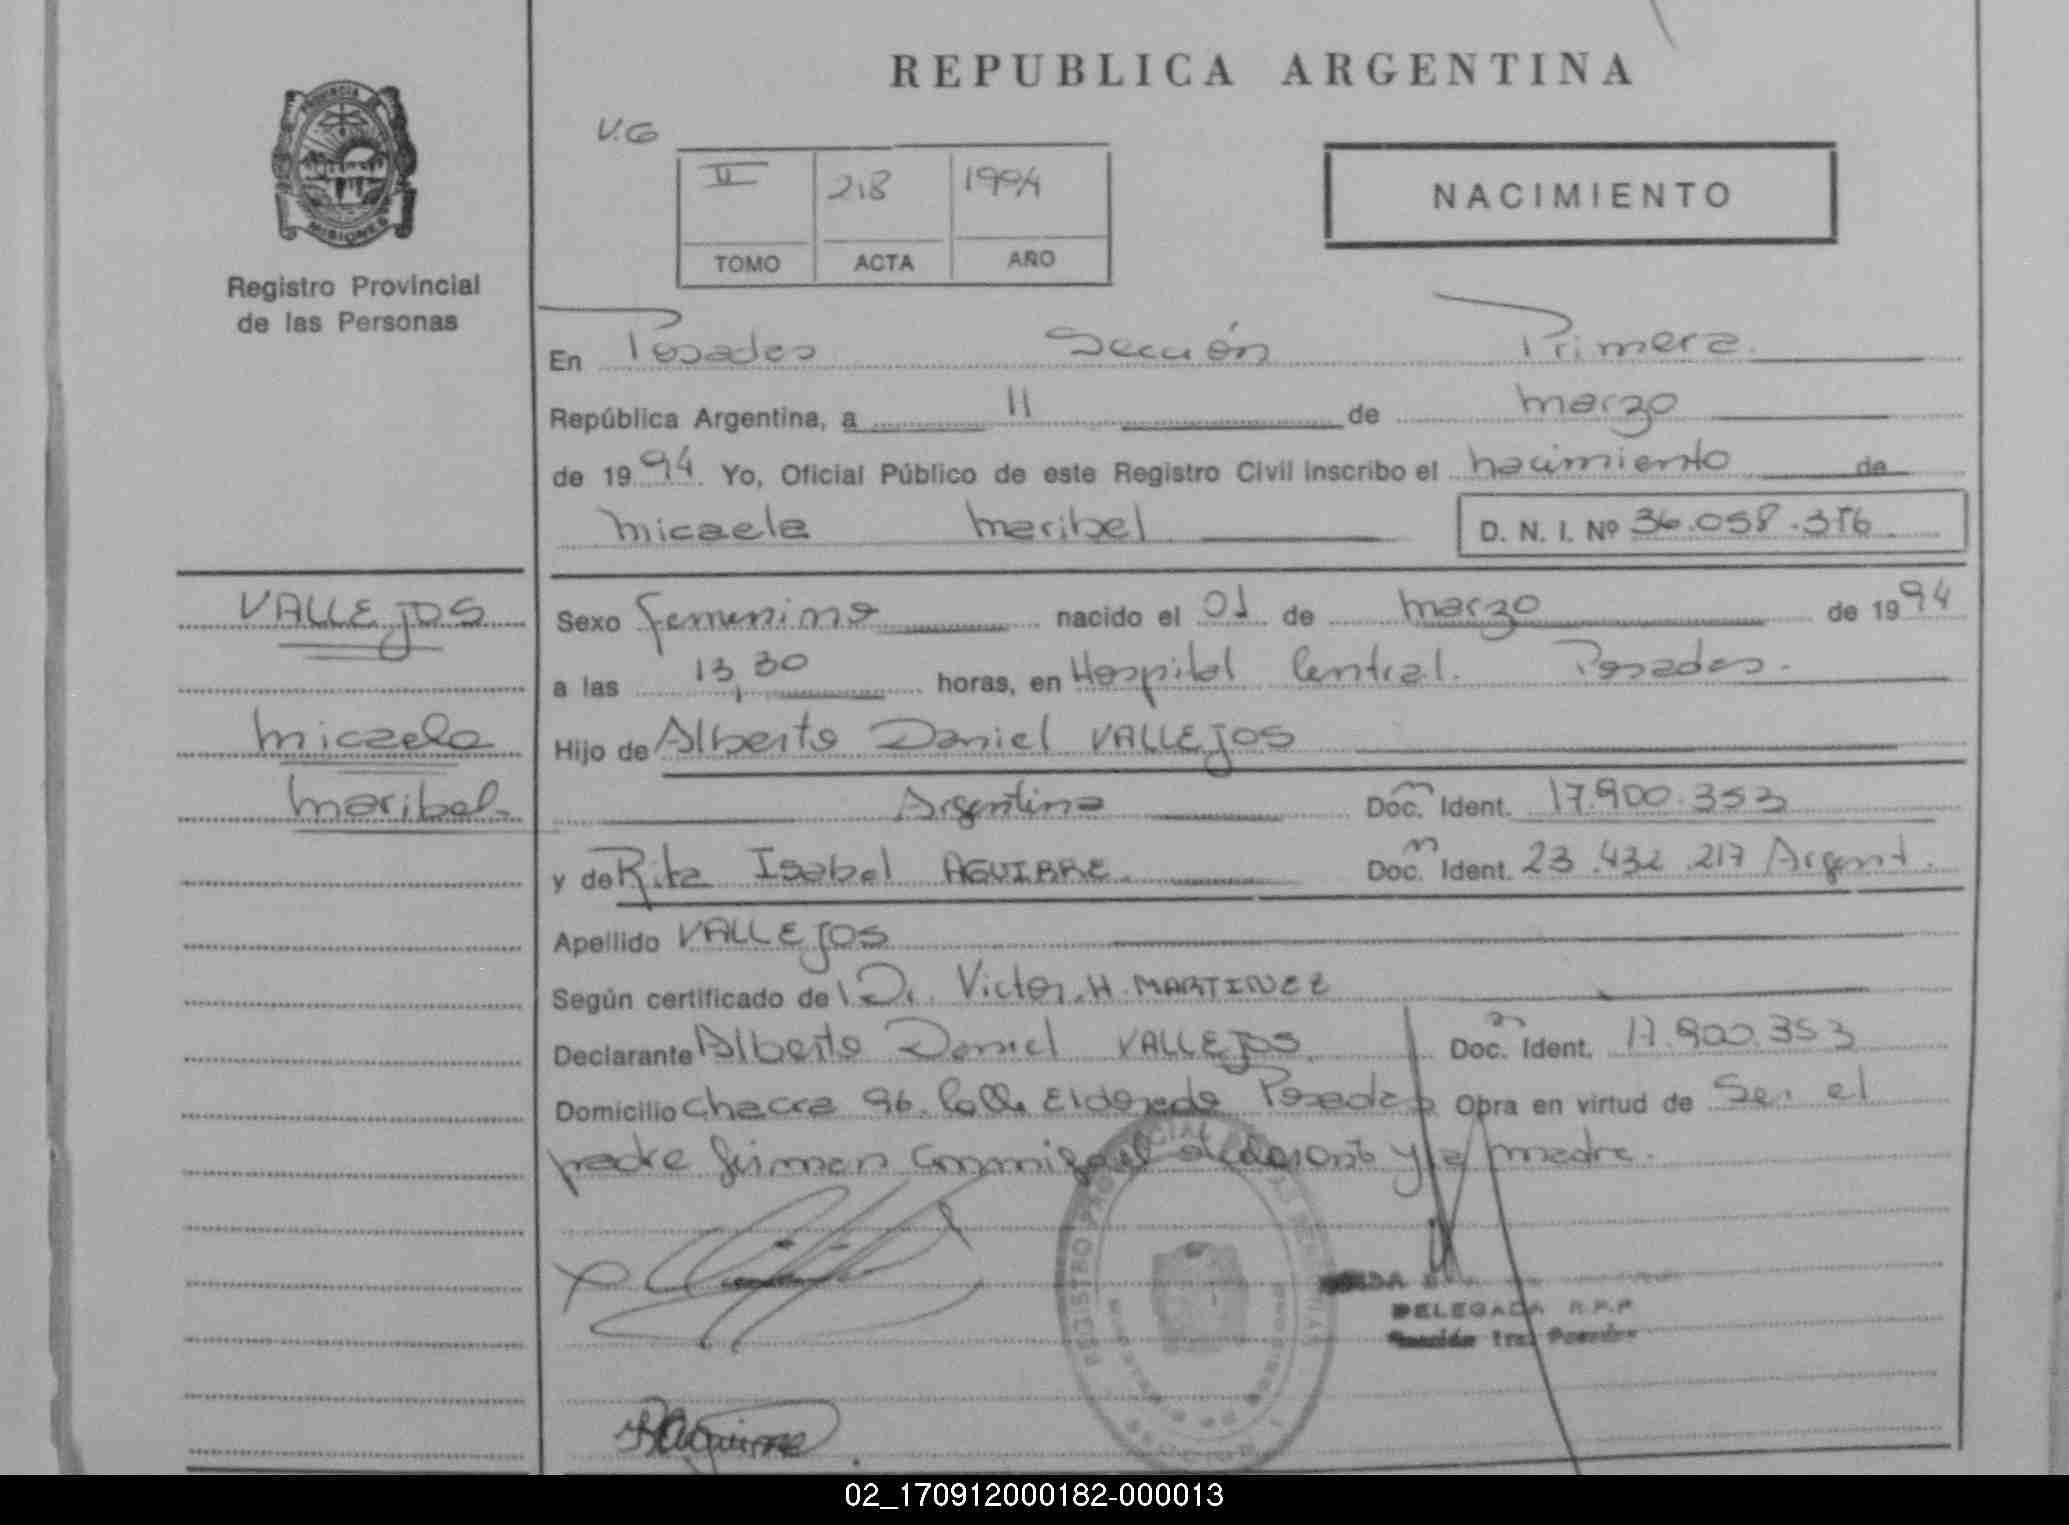 REPUBLICA ARGENTINA
PROVINCIA DE
MISIONES
Registro Provincial
de las Personas
V.G
II 218 1994
TOMO ACTA AÑO
NACIMIENTO
En Posadas Sección Primera.
República Argentina, a 11 de marzo
de 1994. Yo, Oficial Público de este Registro Civil inscribo el nacimiento de
Micaela Maribel D. N. I. Nº 36.058.316
VALLEJOS
Micaela
Maribel.
Sexo femenino nacido el 01 de marzo de 1994
a las 13,30 horas, en Hospital Central. Posadas.
Hijo de Alberto Daniel VALLEJOS
Argentina Doc. Ident. 17.900.353
y de Rita Isabel AGUIRRE. Doc. Ident. 23.432.217 Argent.
Apellido VALLEJOS
Según certificado de Dr. Victor. H. MARTINEZ
Declarante Alberto Daniel VALLEJOS. Doc. Ident. 17.900.353
Domicilio Chacra 96. Calle Eldorado Posadas Obra en virtud de Ser el
padre firman conmigo el y la madre.
DELEGADA R.P.P
Sección 1ra. Posadas
02_170912000182-000013